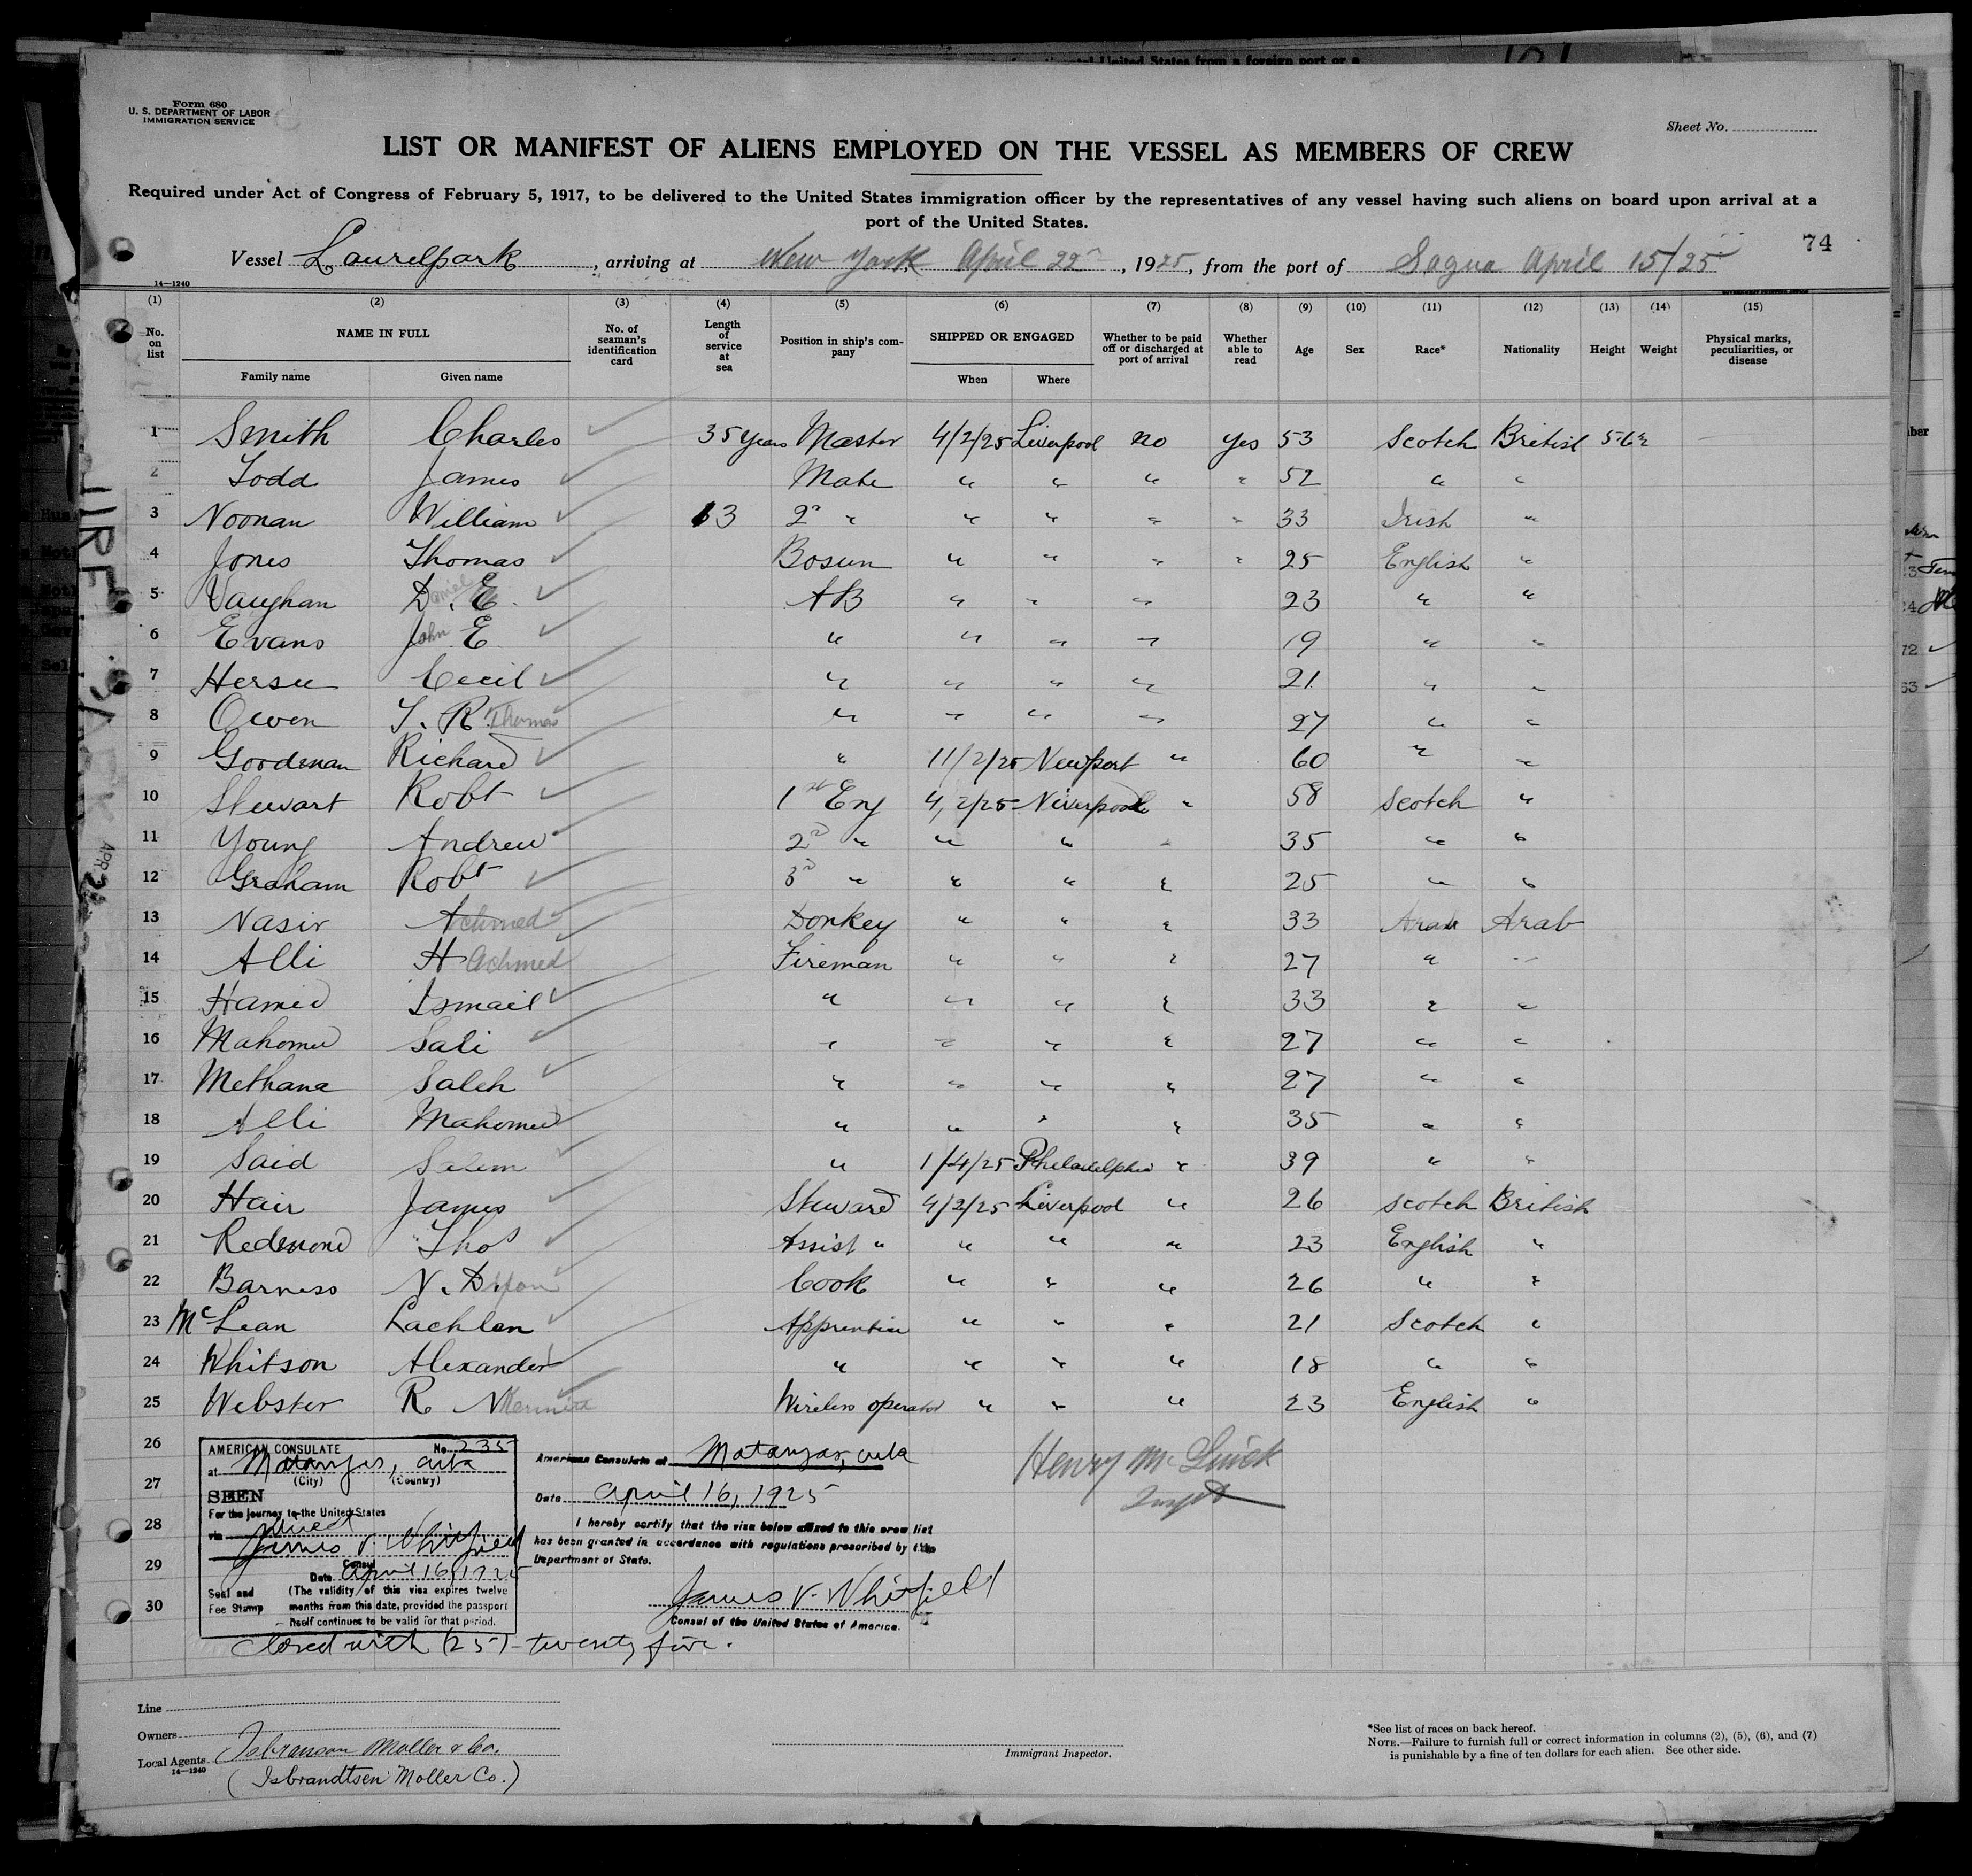 Form 680
U. S. DEPARTMENT OF LABOR
IMMIGRATION SERVICE
Sheet No.
LIST OR MANIFEST OF ALIENS EMPLOYED ON THE VESSEL AS MEMBERS OF CREW
Required under Act of Congress of February 5, 1917, to be delivered to the United States immigration officer by the representatives of any vessel having such aliens on board upon arrival at a
port of the United States.
74
Vessel Laurelpark, arriving at New York, April 22, 1925, from the port of Sagua April 15/25
14—1240
(1) (2) (3) (4) (5) (6) (7) (8) (9) (10) (11) (12) (13) (14) (15)
No. on list NAME IN FULL No. of seaman's identification card Length of service at sea Position in ship's company SHIPPED OR ENGAGED Whether to be paid off or discharged at port of arrival Whether able to read Age Sex Race* Nationality Height Weight Physical marks, peculiarities, or disease
Family name Given name When Where
1 Smith Charles 35 years Master 4/2/25 Liverpool no yes 53 Scotch British
2 Todd James Mate " " " " 52 " "
3 Noonan William 13 2nd " " " " " 33 Irish "
4 Jones Thomas Bosun " " " " 25 English "
5 Vaughan D. Daniel E. AB " " " 23 " "
6 Evans John E " " " " 19 " "
7 Cecil " " " " 21 " "
8 Owen T. R. Thomas " " " " 27 " "
9 Goodman Richard " 11/2/25 Newport " 60 " "
10 Stewart Robt 1st Eng 4/2/25 " 58 Scotch "
11 Young Andrew 2nd " " " " 35 " "
12 Graham Robt 3rd " " " " 25 " "
13 Nasir Achmed Donkey " " " 33 Arab Arab
14 Alli H Achmed Fireman " " " 27 " "
15 Hamed Ismail " " " " 33 " "
16 Mahomed Sali " " " " 27 " "
17 Methana Saleh " " " " 27 " "
18 Alli Mahomed " " " " 35 " "
19 Said Salem " 1/4/25 Philadelphia " 39 " "
20 Hair James Steward 4/2/25 Liverpool " 26 Scotch British
21 Redmond Thos Assist " " " " 23 English "
22 Barness N. Cook " " " 26 " "
23 McLean Lachlan Apprentice " " " 21 Scotch "
24 Whitson Alexander " " " " 18 " "
25 Webster R. Wireless operator " " " 23 English "
26
27
28
29
30
AMERICAN CONSULATE No. 235
at Matanzas, Cuba
(City) (Country)
SEEN
For the journey to the United States
via direct
James V. Whitfield
Consul
Date April 16, 1925
Seal and Fee Stamp (The validity of this visa expires twelve
months from this date, provided the passport
itself continues to be valid for that period.
American Consulate at Matanzas, Cuba
Date April 16, 1925
I hereby certify that the visa below affixed to this crew list
has been granted in accordance with regulations prescribed by the
Department of State.
James V. Whitfield
Consul of the United States of America.
Henry
Inspt
Closed with (25) twenty five.
Line
Owners
Local Agents Isbranson Moller & Co.
14—1240
(Isbrandtsen Moller Co.)
Immigrant Inspector.
*See list of races on back hereof.
NOTE.—Failure to furnish full or correct information in columns (2), (5), (6), and (7)
is punishable by a fine of ten dollars for each alien. See other side.